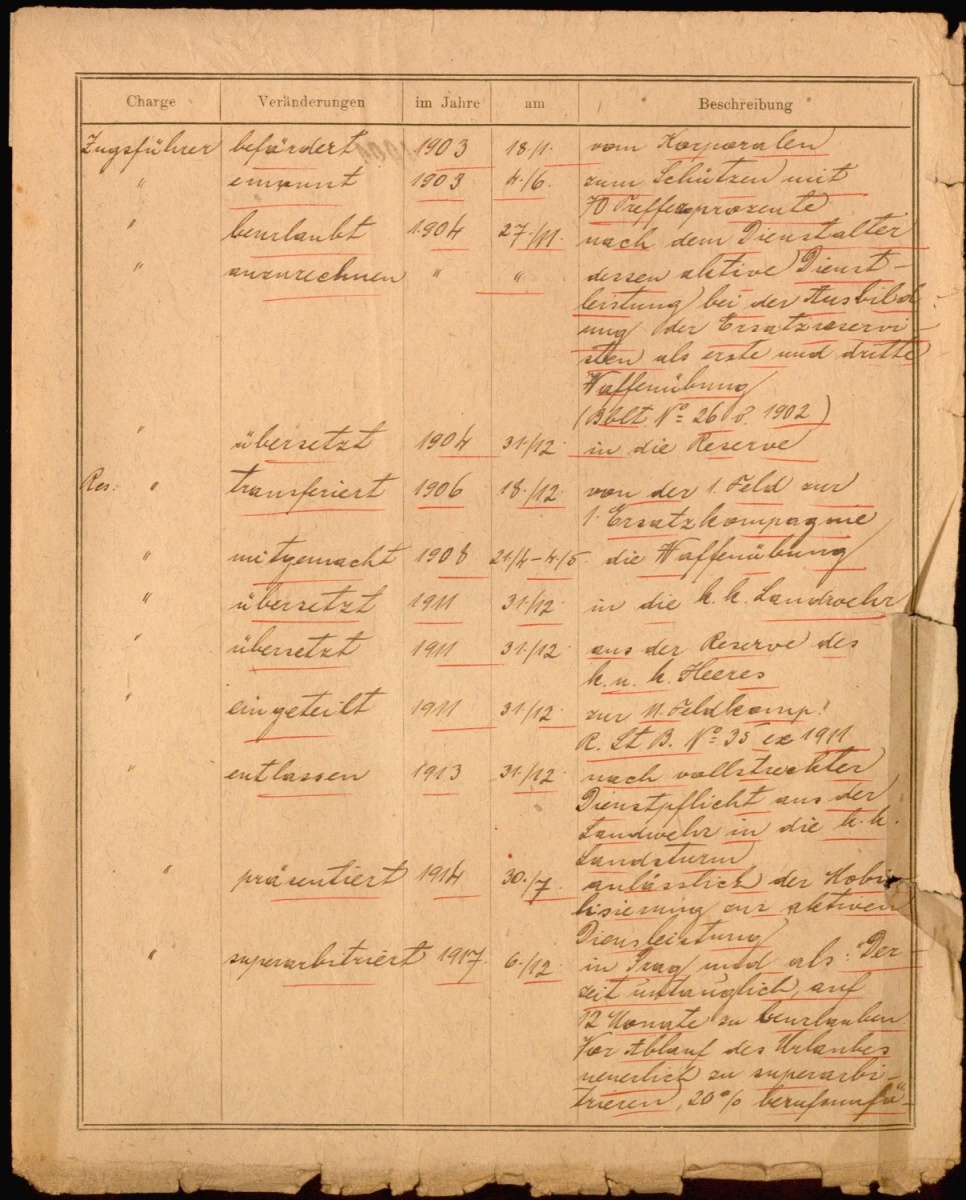 Charge Veränderungen im Jahre am Beschreibung
Zugsführer befördert 1903 18./1. vom Korporalen
" ernannt 1903 4./6. zum Schützen mit
70 Trefferprozente
" beurlaubt 1904 27./11. nach dem Dienstalter
" anzurechnen " " dessen aktive Dienst-
leistung bei der Ausbild-
ung der Ersatzreservi-
sten als erste und dritte
Waffenübung
(Bblt No 26 v. 1902)
" übersetzt 1904 31./12. in die Reserve
Res. " transferiert 1906 18./12. von der 1. Feld zur
1. Ersatzkompagnie
" mitgemacht 1908 21/4-4./5. die Waffenübung
" übersetzt 1911 31./12. in die k.k. Landwehr
" übersetzt 1911 31./12. aus der Reserve des
k. u. k. Heeres
" eingeteilt 1911 31./12. zur 11. Feldkomp.
R. St. B. No 35 ex 1911
" entlassen 1913 31./12. nach vollstreckter
Dienstpflicht aus der
Landwehr in die k.k.
Landsturm
" präsentiert 1914 30./7. anlässlich der Mobi-
lisierung zur aktiven
Diensleistung
" superarbitriert 1917. 6./12. in Prag und als: "Der-
zeit untauglich, auf
12 Monate zu beurlauben
Vor Ablauf des Urlaubes
neuerlich zu superarbi-
trieren, 20% berufsunfä-